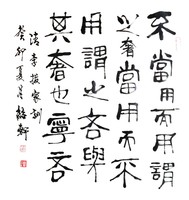 不當用而用謂
之奢當用而不
用謂之吝與
其奢也寧吝
清李家訓
癸卯夏月